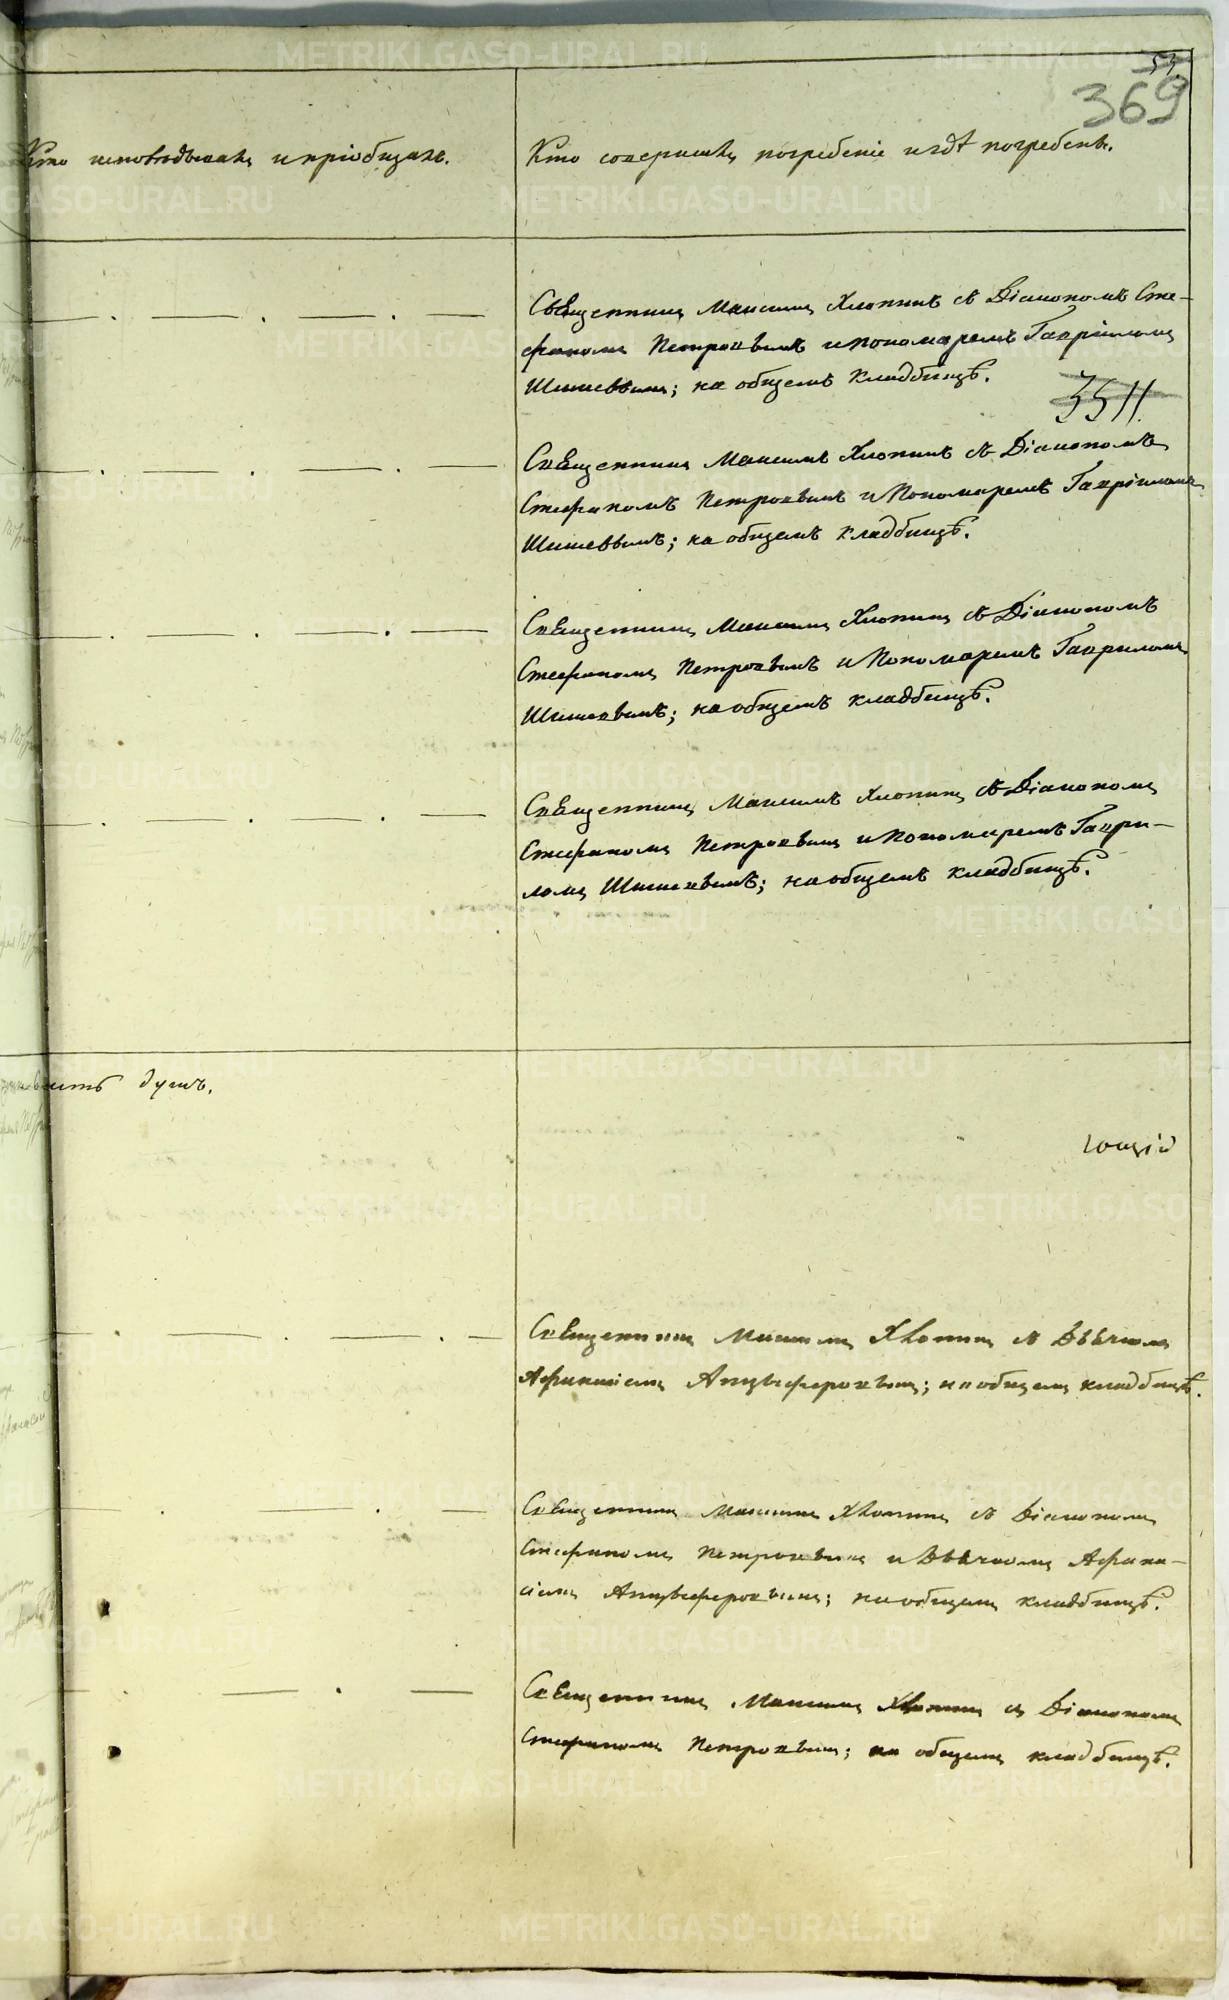 53.
369
Кто исповѣдывалъ и пріобщалъ.
Кто совершилъ погребеніе и гдѣ погребенъ.
Священникъ Максимъ Хлопинъ съ Діакономъ Сте-
фаномъ Петровымъ и пономаремъ Гавріиломъ
Шишевымъ; на общемъ кладбищѣ.
3511.
Священникъ Максимъ Хлопинъ съ Діакономъ
Стефаномъ Петровымъ и Пономаремъ Гавріиломъ
Шишевымъ; на общемъ кладбищѣ.
Священникъ Максимъ Хлопинъ съ Діакономъ
Стефаномъ Петровымъ и Пономаремъ Гавриломъ
Шишевымъ; на общемъ кладбищѣ.
Священникъ Максимъ Хлопинъ съ Діакономъ
Стефаномъ Петровымъ и Пономаремъ Гаври-
ломъ Шишевымъ; на общемъ кладбищѣ.
душъ.
ющій
Священникъ Максимъ Хлопинъ съ Дьячкомъ
Афанасіемъ Анцыферовымъ; на общемъ кладбищѣ.
Священникъ Максимъ Хлопинъ съ Діакономъ
Стефаномъ Петровымъ и Дьячкомъ Афана-
сіемъ Анцыферовымъ; на общемъ кладбищѣ.
Священникъ Максимъ Хлопинъ съ Діакономъ
Стефаномъ Петровымъ; на общемъ кладбищѣ.
METRIKI.GASO-URAL.RU